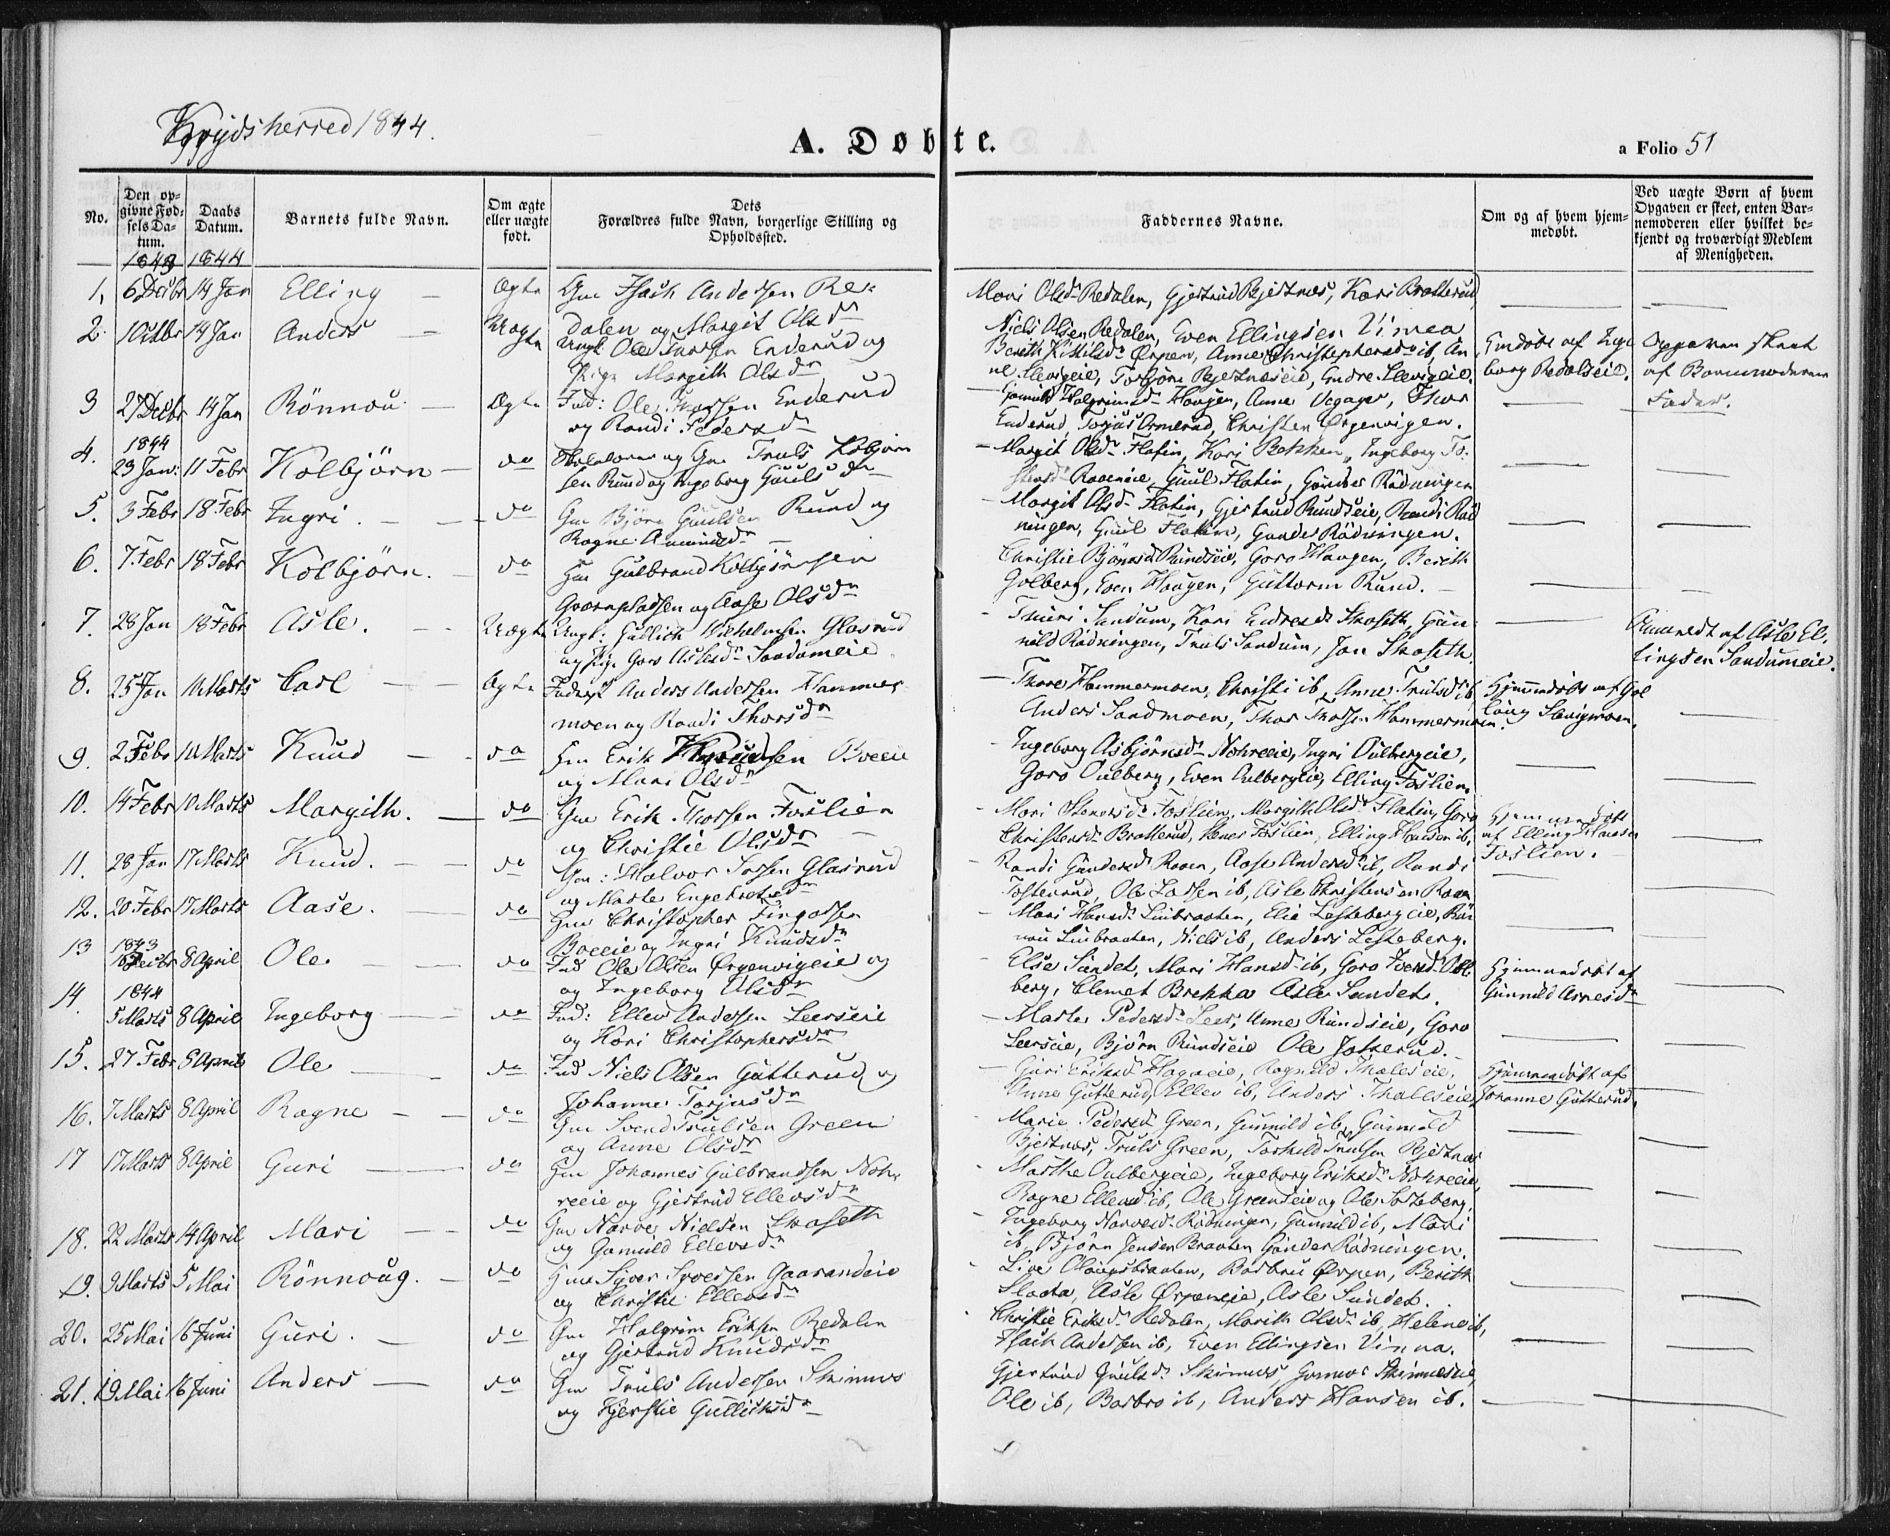 Krydsherred 1844.
A. Døbte.
a Folio 51
No.
Den opgivne Fødsels Datum.
Daabs Datum.
Barnets fulde Navn.
Om ægte eller uægte født.
Dets Forældres fulde Navn, borgerlige Stilling og Opholdssted.
Faddernes Navne.
Om og af hvem hjemmedøbt.
Ved uægte Børn af hvem Opgaven er skeet, enten Barnemoderen eller hvilket bekjendt og troværdigt Medlem af Menigheden.
1843 1844
1. 6 Decbr 14 Jan Elling — Ægte Gm Isach Andersen Re-
dalen og Margit Olsdr
Mari Olsdr Redalen, Gjertrud Bjertnæs, Kari Bratterud
Niels Olsen Redalen, Even Ellingsen Vimea
2. 14 Jan Anders — Uægte Ungk. Ole Enderud og
Pige Margith Olsdr
Berith Ørpen, Anne Christophersdr ib, An
ne Slevigeie, Torbjørn Bjertnæseie, Endre Slevigeie.
borg Redalseie.
Opgaven skeet
af Barnemoderens
Fader.
3 27 Decbr 14 Jan Rönnou — Ægte Ind: Ole Enderud
og Randi Pedersdr
Haagen, Anne, Thor
Enderud, Torjus Ormerud, Christen Ørgenvigen.
4. 1844
23 Jan: 11 Febr Kolbjørn — do og Gm Truls Kolbjørn
sen Rund og Ingeborg Guulsdr
— Margit Olsdr Flatin, Kari Bakken, Ingeborg To-
Raaeneie, Guul Flatin, Gunder Rödningen
5. 3 Febr 18 Febr Ingri. — do Gm Bjørn Guulsen Rund og
Ragne Amundsdr
— Margit Olsdr Flatin, Gjertrud Rundseie, Randi Röd
ningen, Guul Flatin, Gunder Rödningen.
6. 7 Febr 18 Febr Kolbjørn. — do Gm Gulbrand Kolbjørnsen
Qværnpladsen og Aase Olsdr
Christie Bjørnsd Rundseie, Goro Haagen, Berith
Golberg, Even Haagen, Guttorm Rund.
7. 28 Jan 18 Febr Asle. — Uægte Ungk: Gudlich Wilhelmsen Glasrud
og Pige Goro Aslesdr Sandumeie
— Thuri Sandum, Kari Endresdr Skaseth, Gun
nild Rödningen, Truls Sandum, Jan Skaseth.
Anmeldt af Asle El-
lingsen Sandumeie.
8. 25 Jan 10 Marts Carl — Ægte Anders Andersen Hammer
moen og Randi Thorsdr
— Thore Hammermoen, Christi ib, Anne Trulsd ib
Anders Sandmoen, Thor Thorsen Hammermoen.
Hjemmedøbt af Gol
laug Slevigmoen.
9. 2 Febr 10 Marts Knud — do Gm Erik Knudsen Bveeie
og Mari Olsdr
— Ingeborg Asbjørnsdr Nohreeie, Ingri Oulbergeie,
Goro Oulberg, Even Oulbergeie, Elling Foslien
10. 14 Febr 10 Marts Margith. — do Gm Erik Thorsen Foslien
og Christie Olsdr
— Mari Foslien, Margith Olsdr Flatin, Goro
Christensdr Bratterud, Foslien, Elling Hansen ib,
Hjemmedøbt
af Elling Hansen
Foslien.
11. 28 Jan 17 Marts Knud. — do Gm: Halvor Glasrud
og Marte Engebretsdr
Randi Gundersdr Raaen, Aase Andersdr ib, Randi
Tosterud, Ole Larsen ib, Asle Christensen Raaen
12. 20 Febr 17 Marts Aase. — do Gm Christopher Fingarsen
Boeeie og Ingri Knudsdr
— Mari Hansdr Linbraaten, Elie Lesteberg eie, Rön
nou Linbraaten, Niels ib, Anders Lesteberg.
13 1843
8 April Ole. — do Ind Ole Olsen Ørgenvigeie og
og Ingeborg Olsdr
— Else Sundet, Mari Hansd ib, Goro Oul
berg, Clemet Brekka Asle Sundet.
Hjemmedøbt af
Gunnild Arnesdr
14. 1844
5 Marts 8 April Ingeborg — do Ind: Ellev Andersen Leerseie
og Kari Christophersdr
— Marte Pedersdr Leer, Anne Rundseie, Goro
Leerseie, Bjørn Rundseie Ole.
15. 27 Febr 8 April Ole — do Ind Niels Olsen Gutterud og
Johanne Torjusdr
— Guri Eriksd, Ragnild Thaleseie,
Anne Gutterud, Ellev ib, Anders Thaleseie
Hjemmedøbt af
Johanne Gutterud.
16. 7 Marts 8 April Ragne — do Gm Svend Trulsen Green
og Anne Olsdr
Marie Pedersd Green, Gunnild ib, Gunnild
Bjertnæs, Truls Green, Torkild Trulsen Bjertnæs
17 17 Marts 8 April Guri — do Gm Johannes Gulbrandsen Noh-
reeie og Gjertrud Ellevsdr
— Marthe Oulbergeie, Ingeborg Eriksdr Nohreeie,
Ragne Ellevsd ib, Ole Greenseie og Ole Lesteberg.
18. 22 Marts 14 April Mari — do Gm Narve Nielsen Skaseth
og Gunnild Ellevsdr
— Ingeborg Narvesdr Rödningen, Gunnild ib, Mari
ib, Bjørn Jensen Braaten Gunder Rödningen.
19. 9 Marts 5 Mai Rönnoug. — do Gm Syver Gaarandeie
og Christie Ellevsdr
— Live, Barbru Ørpen, Berith
Slaata, Asle Ørpeneie, Asle Sundet.
20. 25 Mai 16 Juni Guri. — do Gm Halgrim Eriksen Redalen
og Gjertrud Knudsdr
Christie Eriksdr Redalen, Marith Olsdr ib, Helene ib,
Isach Andersen ib, Even Ellingsen Vinna.
21. 19 Mai 16 Juni Anders — do Gm Truls Andersen Skinnes
og Kjerstie Gulliksdr
Gjertrud Guulsdr Skinnes, Gunnor Skinneseie,
Ole ib, Barbro ib, Anders Hansen ib.